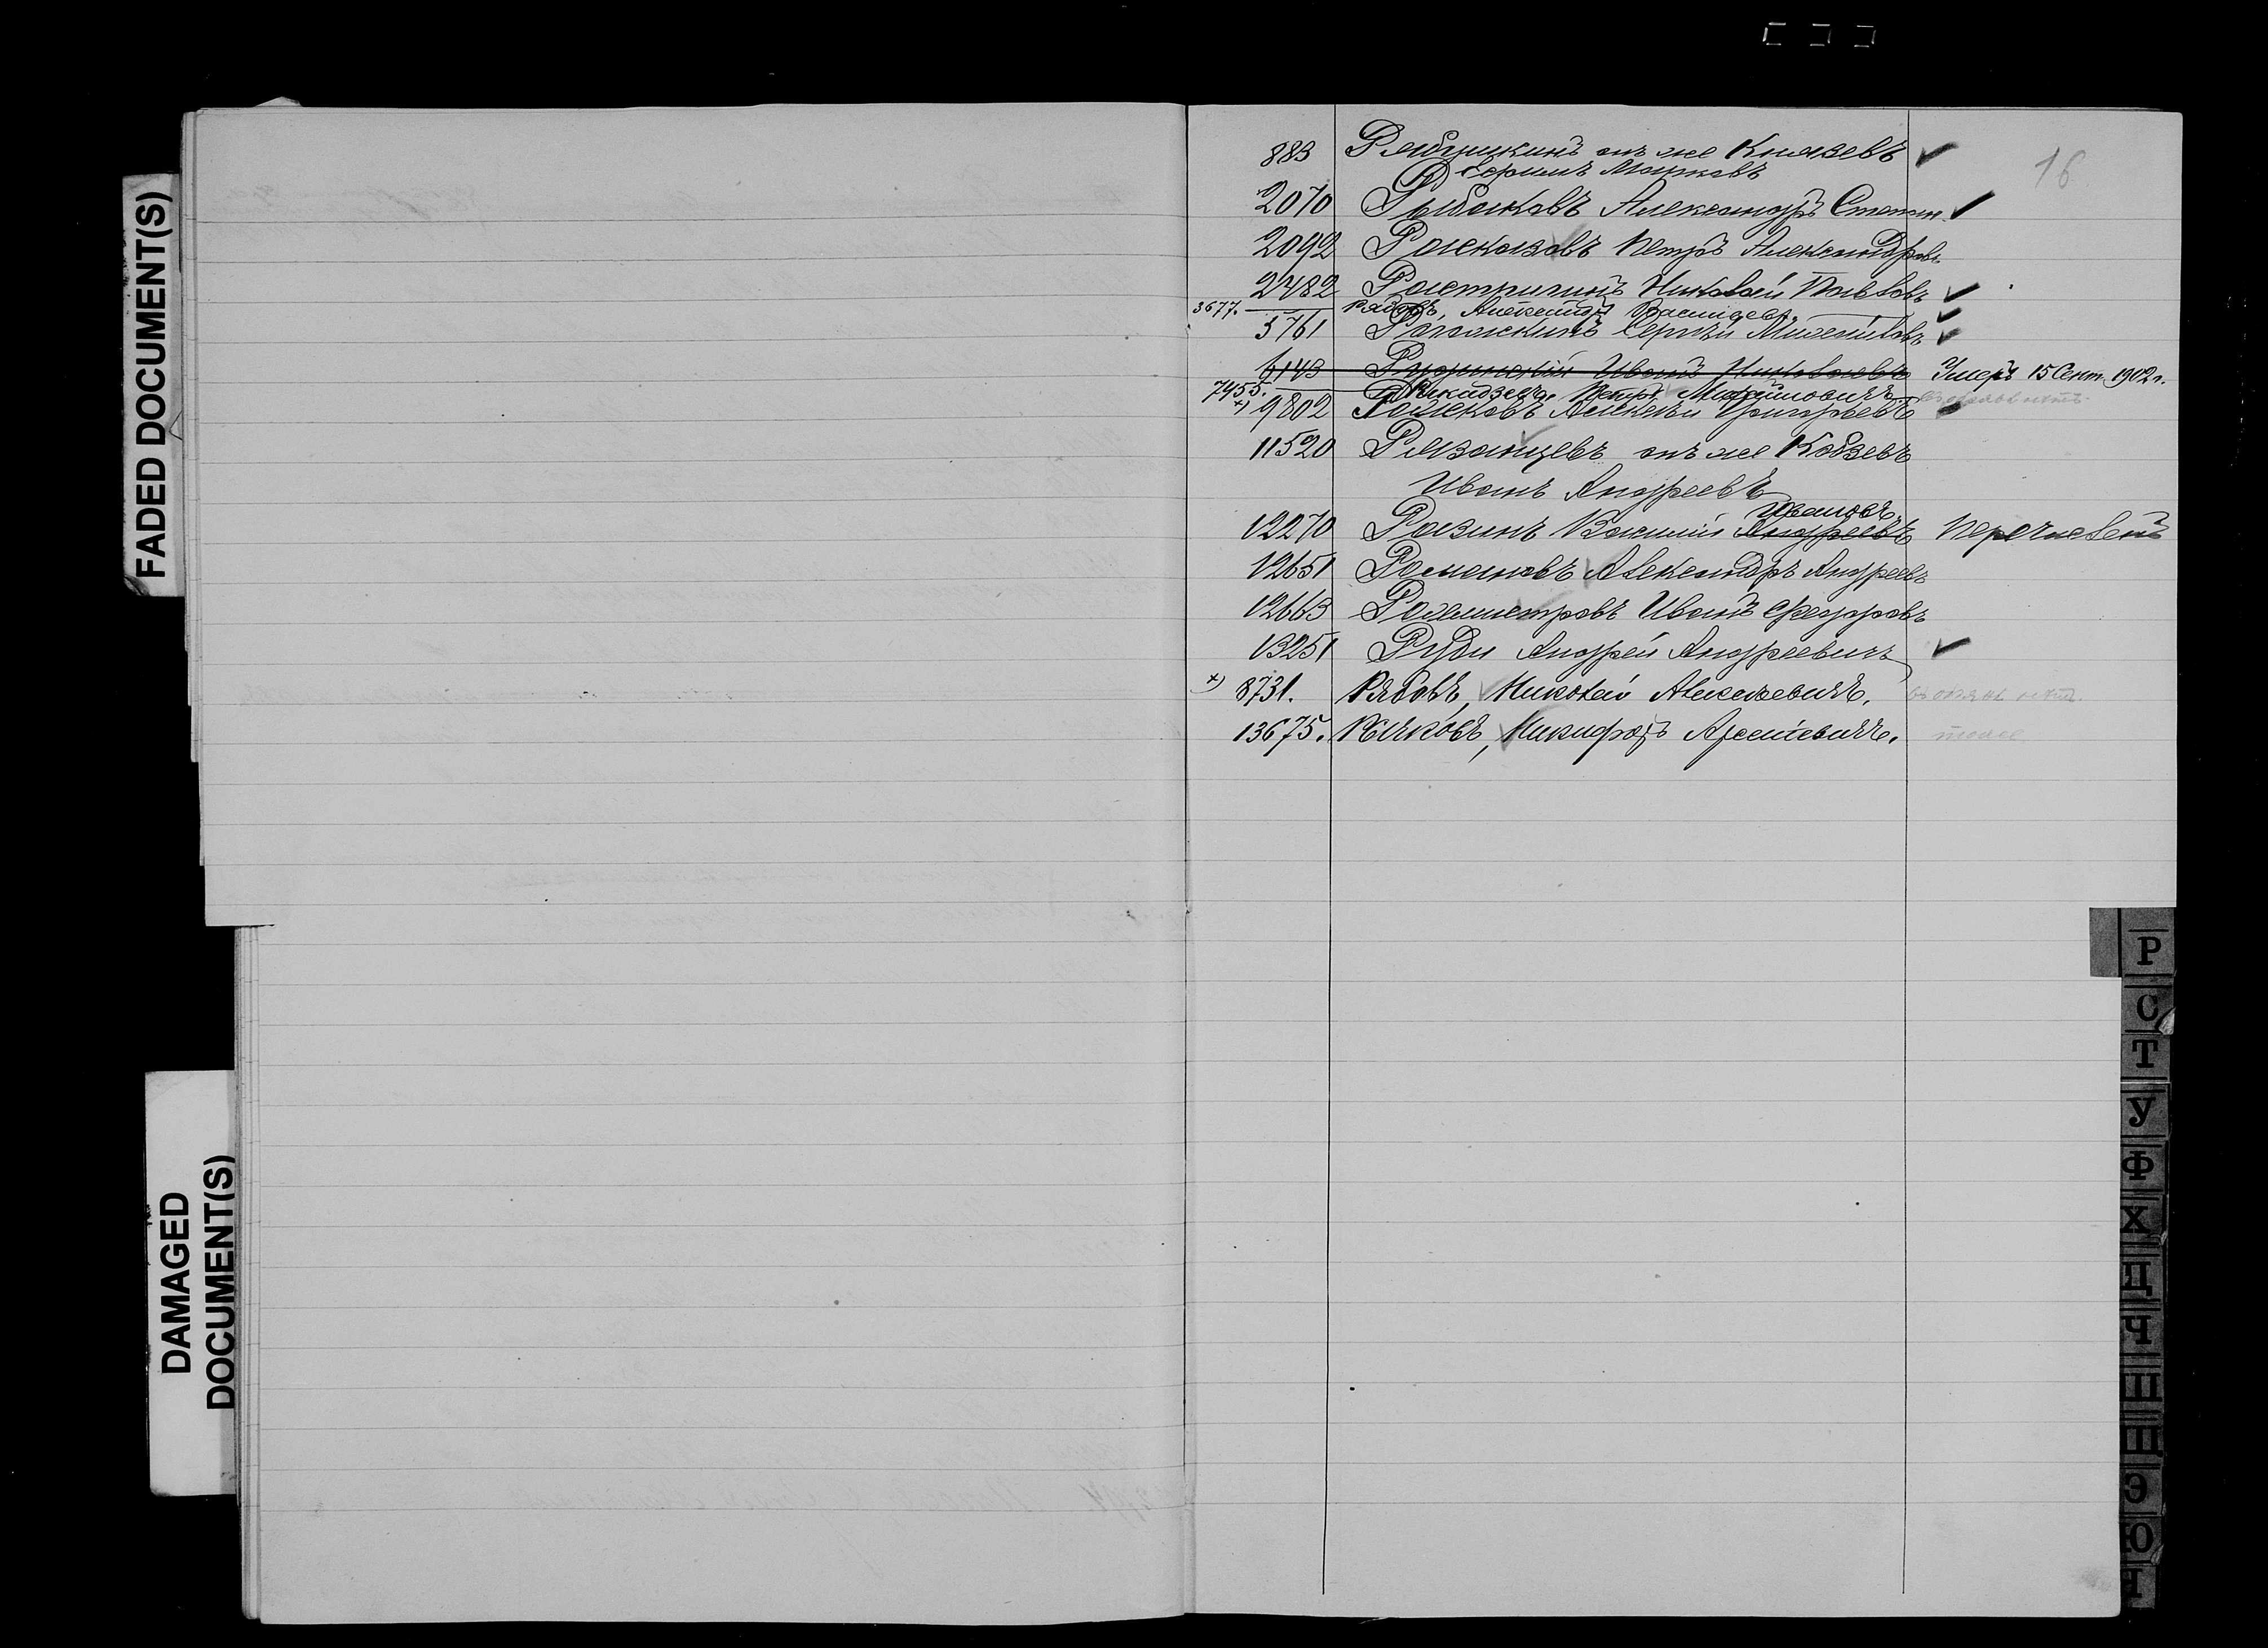 FADED DOCUMENT(S)
DAMAGED
DOCUMENT(S)
16
883 Рябушкинъ онъ же Князевъ
Марковъ
2070 Рыбаковъ Александръ Степан.
2092 Расказовъ Петръ Александровъ
2482 Растригинъ Николай Павловъ
3677. Рябовъ, Александръ Васильевъ
3761 Рогожкинъ Сергѣй Михайловъ
6143 Иванъ Николаевъ Умеръ 15 Сент. 1902 г.
7455. Петръ Михайловичъ
×) 9802 Алексѣй Григорьевъ
11520 Рязанцевъ онъ же Кобзевъ
Иванъ Андреевъ
Ивановъ
12270 Разинъ Василій Андреевъ Перечисленъ
12651 Романовъ Александръ Андреевъ
12663 Иванъ Федоровъ
13251 Руди Андрей Андреевичъ
×) 8731. Рябовъ, Николай Алексѣевичъ.
13675. Никифоръ Арсеніевичъ. тоже
Р
С
Т
У
Ф
Х
Ц
Ч
Ш
Щ
Э
Ю